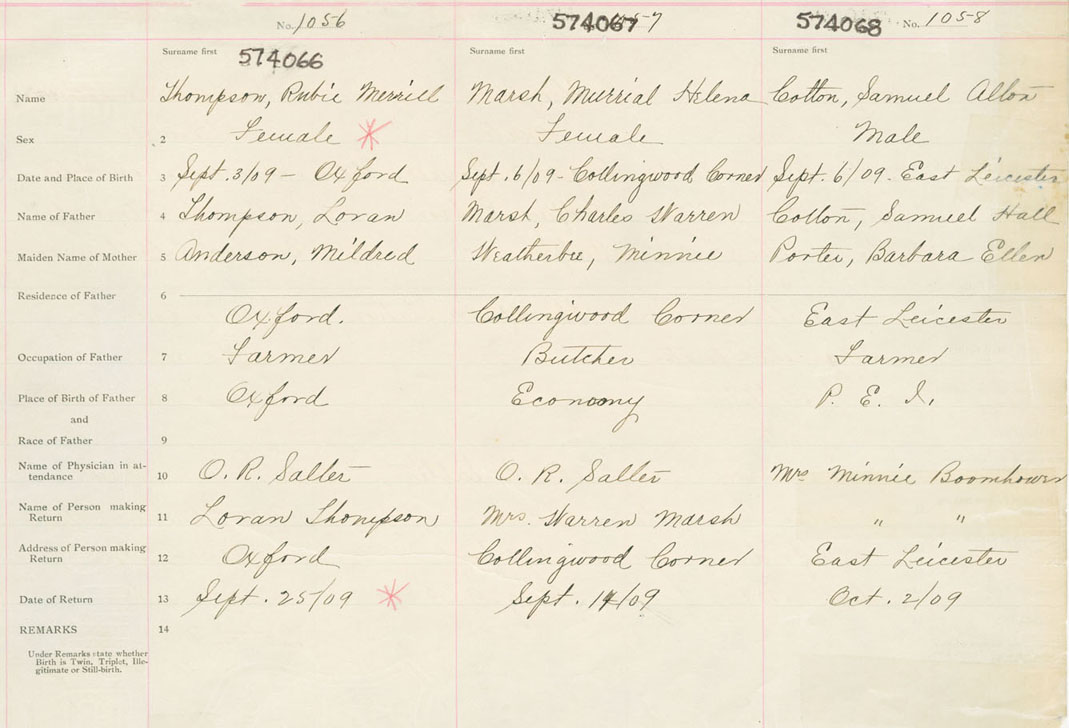 No. 1056 574067 57 574068 No. 1058
Surname first 574066 Surname first Surname first
Name Thompson, Rubie Merrill Marsh, Murrial Helena Cotton, Samuel Allon
Sex 2 Female Female Male
Date and Place of Birth 3 Sept. 3/09 - Oxford Sept. 6/09 - Collingwood Corner Sept. 6/09. East Leicester
Name of Father 4 Thompson, Loran Marsh, Charles Warren Cotton, Samuel Hall
Maiden Name of Mother 5 Anderson, Mildred Weatherbee, Minnie Porter, Barbara Ellen
Residence of Father 6
Oxford. Collingwood Corner East Leicester
Occupation of Father 7 Farmer Butcher Farmer
Place of Birth of Father 8 Oxford Economy P. E. I.
and
Race of Father 9
Name of Physician in at-
tendance 10 O. R. Salter O. R. Salter Mrs Minnie Boomhower
Name of Person making
Return 11 Loran Thompson Mrs. Warren Marsh " "
Address of Person making
Return 12 Oxford Collingwood Corner East Leicester
Date of Return 13 Sept. 25/09 Sept. 14/09 Oct. 2/09
REMARKS 14
Under Remarks state whether
Birth is Twin, Triplet, Ille-
gitimate or Still-birth.